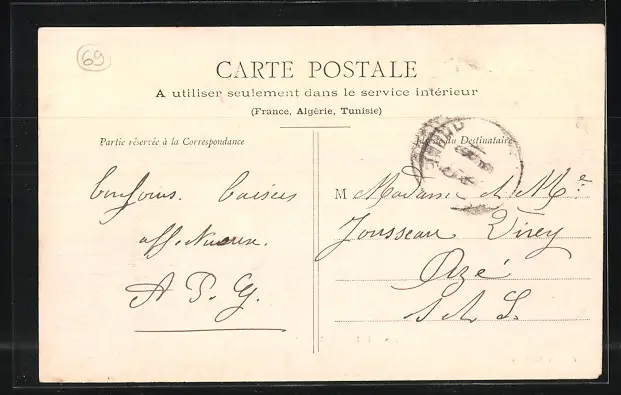 69
CARTE POSTALE
A utiliser seulement dans le service intérieur
(France, Algérie, Tunisie)
Partie réservée à la Correspondance
du Destinataire
Bonjours. baisers
affectueux.
A P. G.
M Madame et Mr
Jousseau Viney
Azé
S et L.